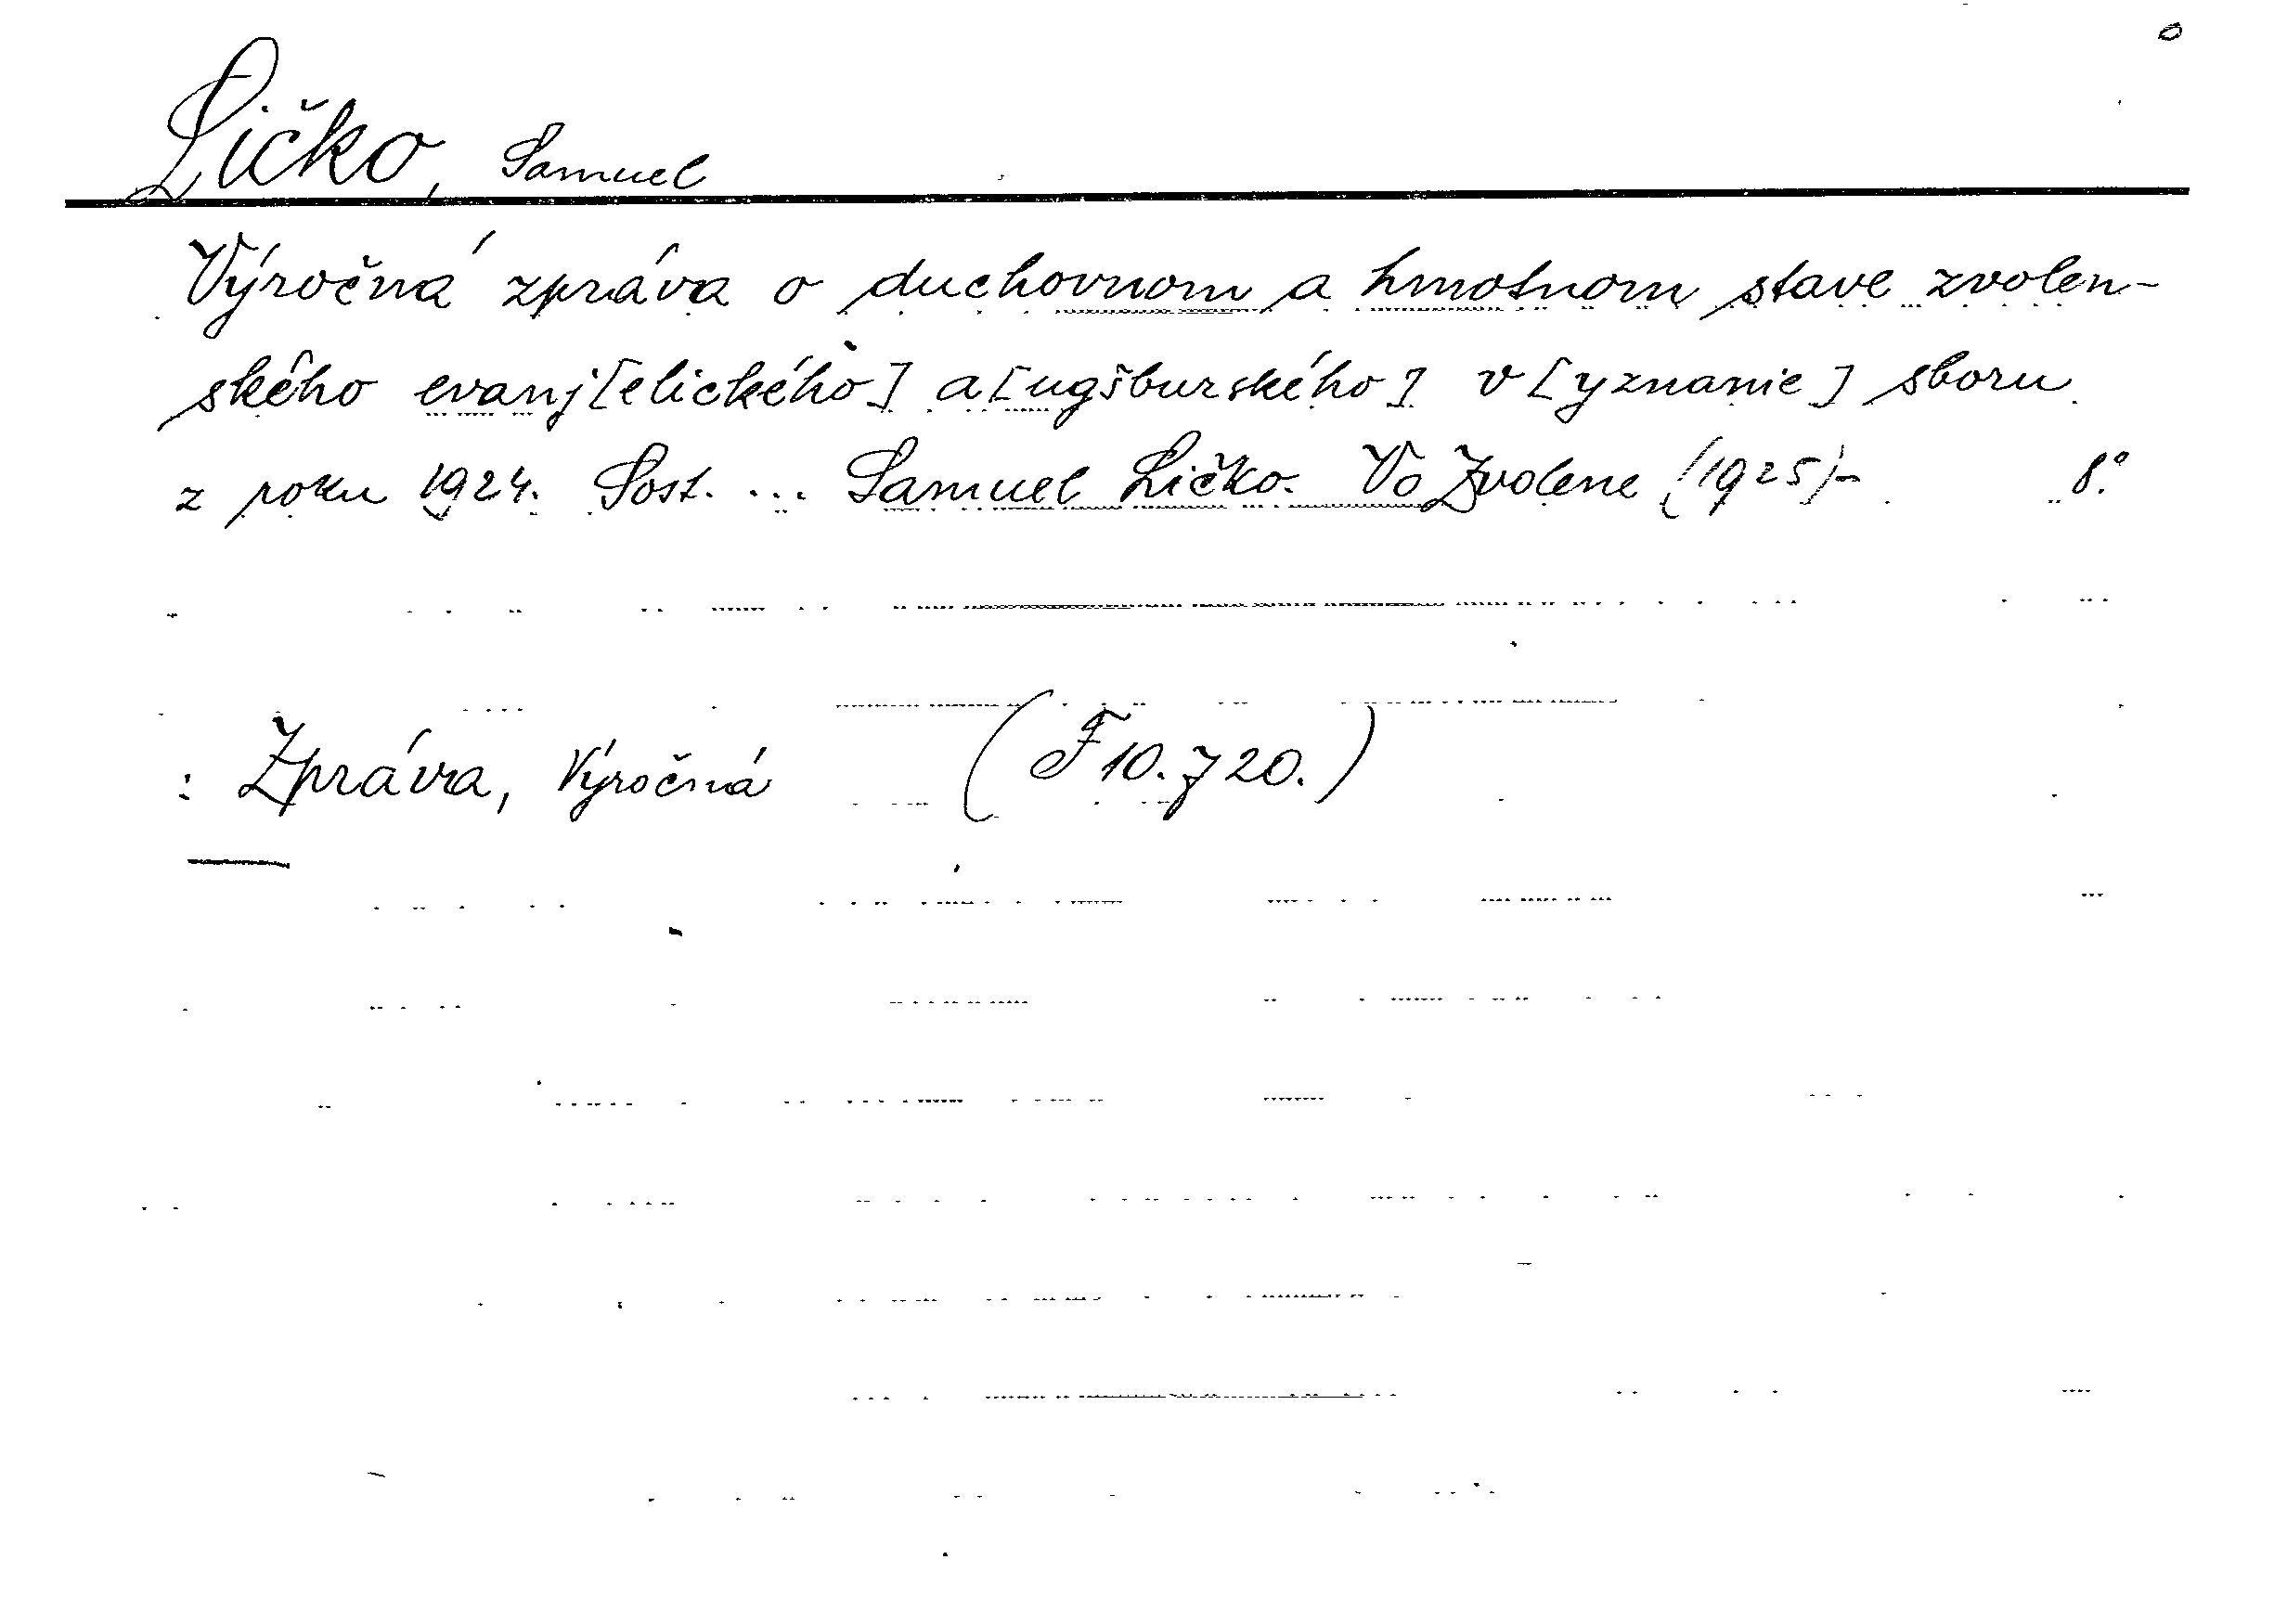 Ličko, Samuel
Výročná zpráva o duchovnom a hmotnom stave zvolen-
ského evanj[elického] a[ugšburského] v[yznanie] sboru
z roku 1924. Sost. ... Samuel Ličko. Vo Zvolene (1925)- 8°.
: Zpráva, Výročná (F 10.720.)